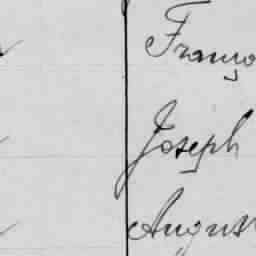 Franço
Joseph
August